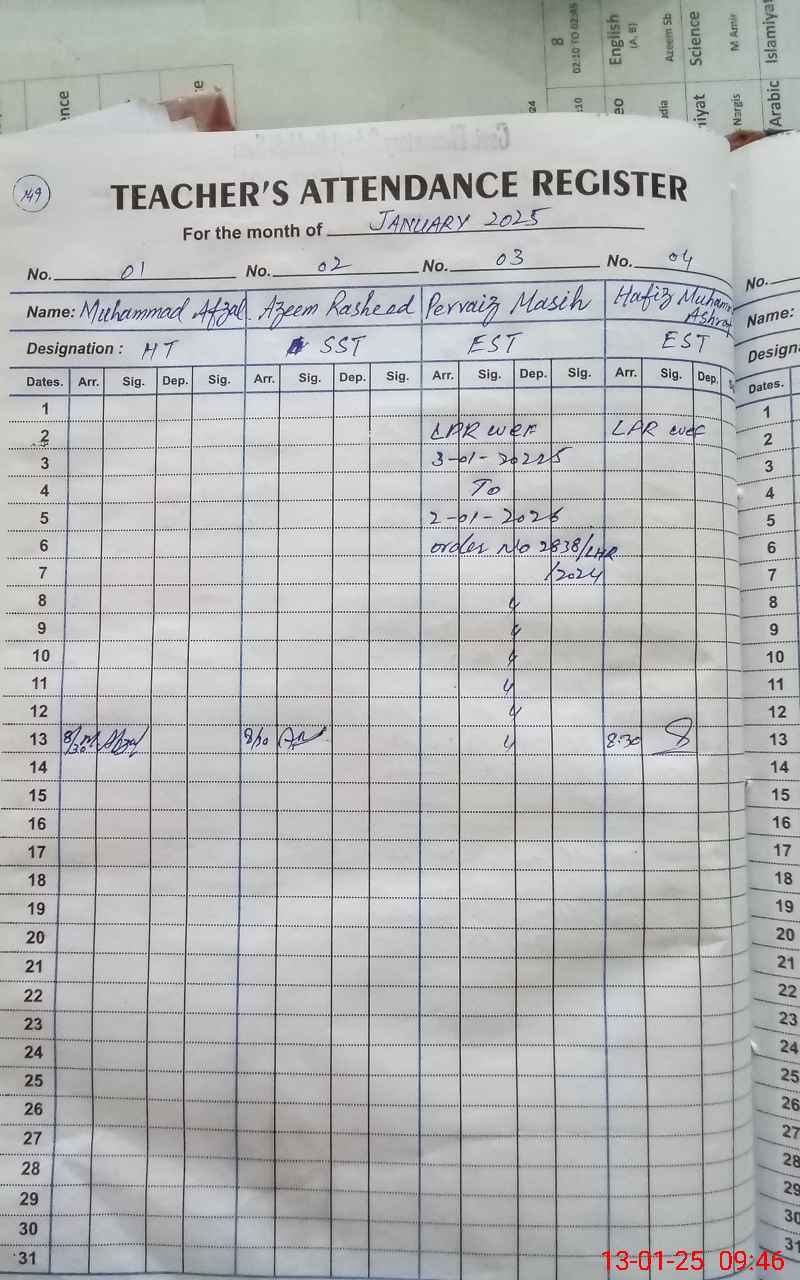 8
02:10 TO 02:45
English
(A, B)
Azeem Sb
Science
M Amir
Islamiyat
Nargis
Arabic
149
TEACHER'S ATTENDANCE REGISTER
For the month of JANUARY 2025
No. 01 No. 02 No. 03 No. 04
Name: Muhammad Afzal Azeem Rasheed Pervaiz Masih Hafiz Muhamm
Ashraf
Designation : HT SST EST EST
Dates. Arr. Sig. Dep. Sig. Arr. Sig. Dep. Sig. Arr. Sig. Dep. Sig. Arr. Sig. Dep.
1
2 LPR wef LPR wef
3 3-01-20225
4 To
5 2-01-2026
6 order No 2838/LHR
7 /2024
8 "
9 "
10 "
11 "
12 "
13 8/30 M Afzal 8/30 " 8:30
14
15
16
17
18
19
20
21
22
23
24
25
26
27
28
29
30
31
No.
Name:
Design
Dates.
1
2
3
4
5
6
7
8
9
10
11
12
13
14
15
16
17
18
19
20
21
22
23
24
25
26
27
28
29
30
31
13-01-25 09:46